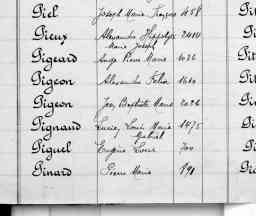 Piel Joseph Marie François 458
Pieux Alexandre Hippolyte 2404
Marie Joseph
Pigeard Ange Pierre Marie 426
Pigeon Alexandre Félix 1640
Pigeon Jean Baptiste Marie 2026
Pignaud Lucien, Louis Marie 1475
Gabriel
Piguel Eugène Louis 700
Pinard Pierre Marie 991